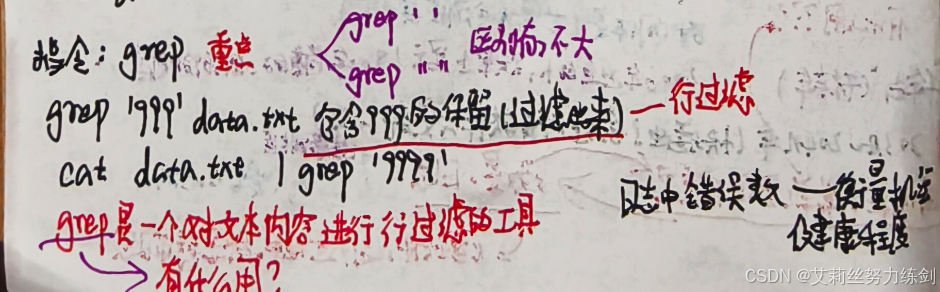 指令：grep 重点
grep ' '
grep " "
区别不大
grep '999' data.txt 包含999的保留（过滤出来）— 行过滤
cat data.txt | grep '9999'
日志中错误数 — 衡量机器
健康程度
grep是一个对文本内容进行行过滤的工具
有什么用？
CSDN @艾莉丝努力练剑